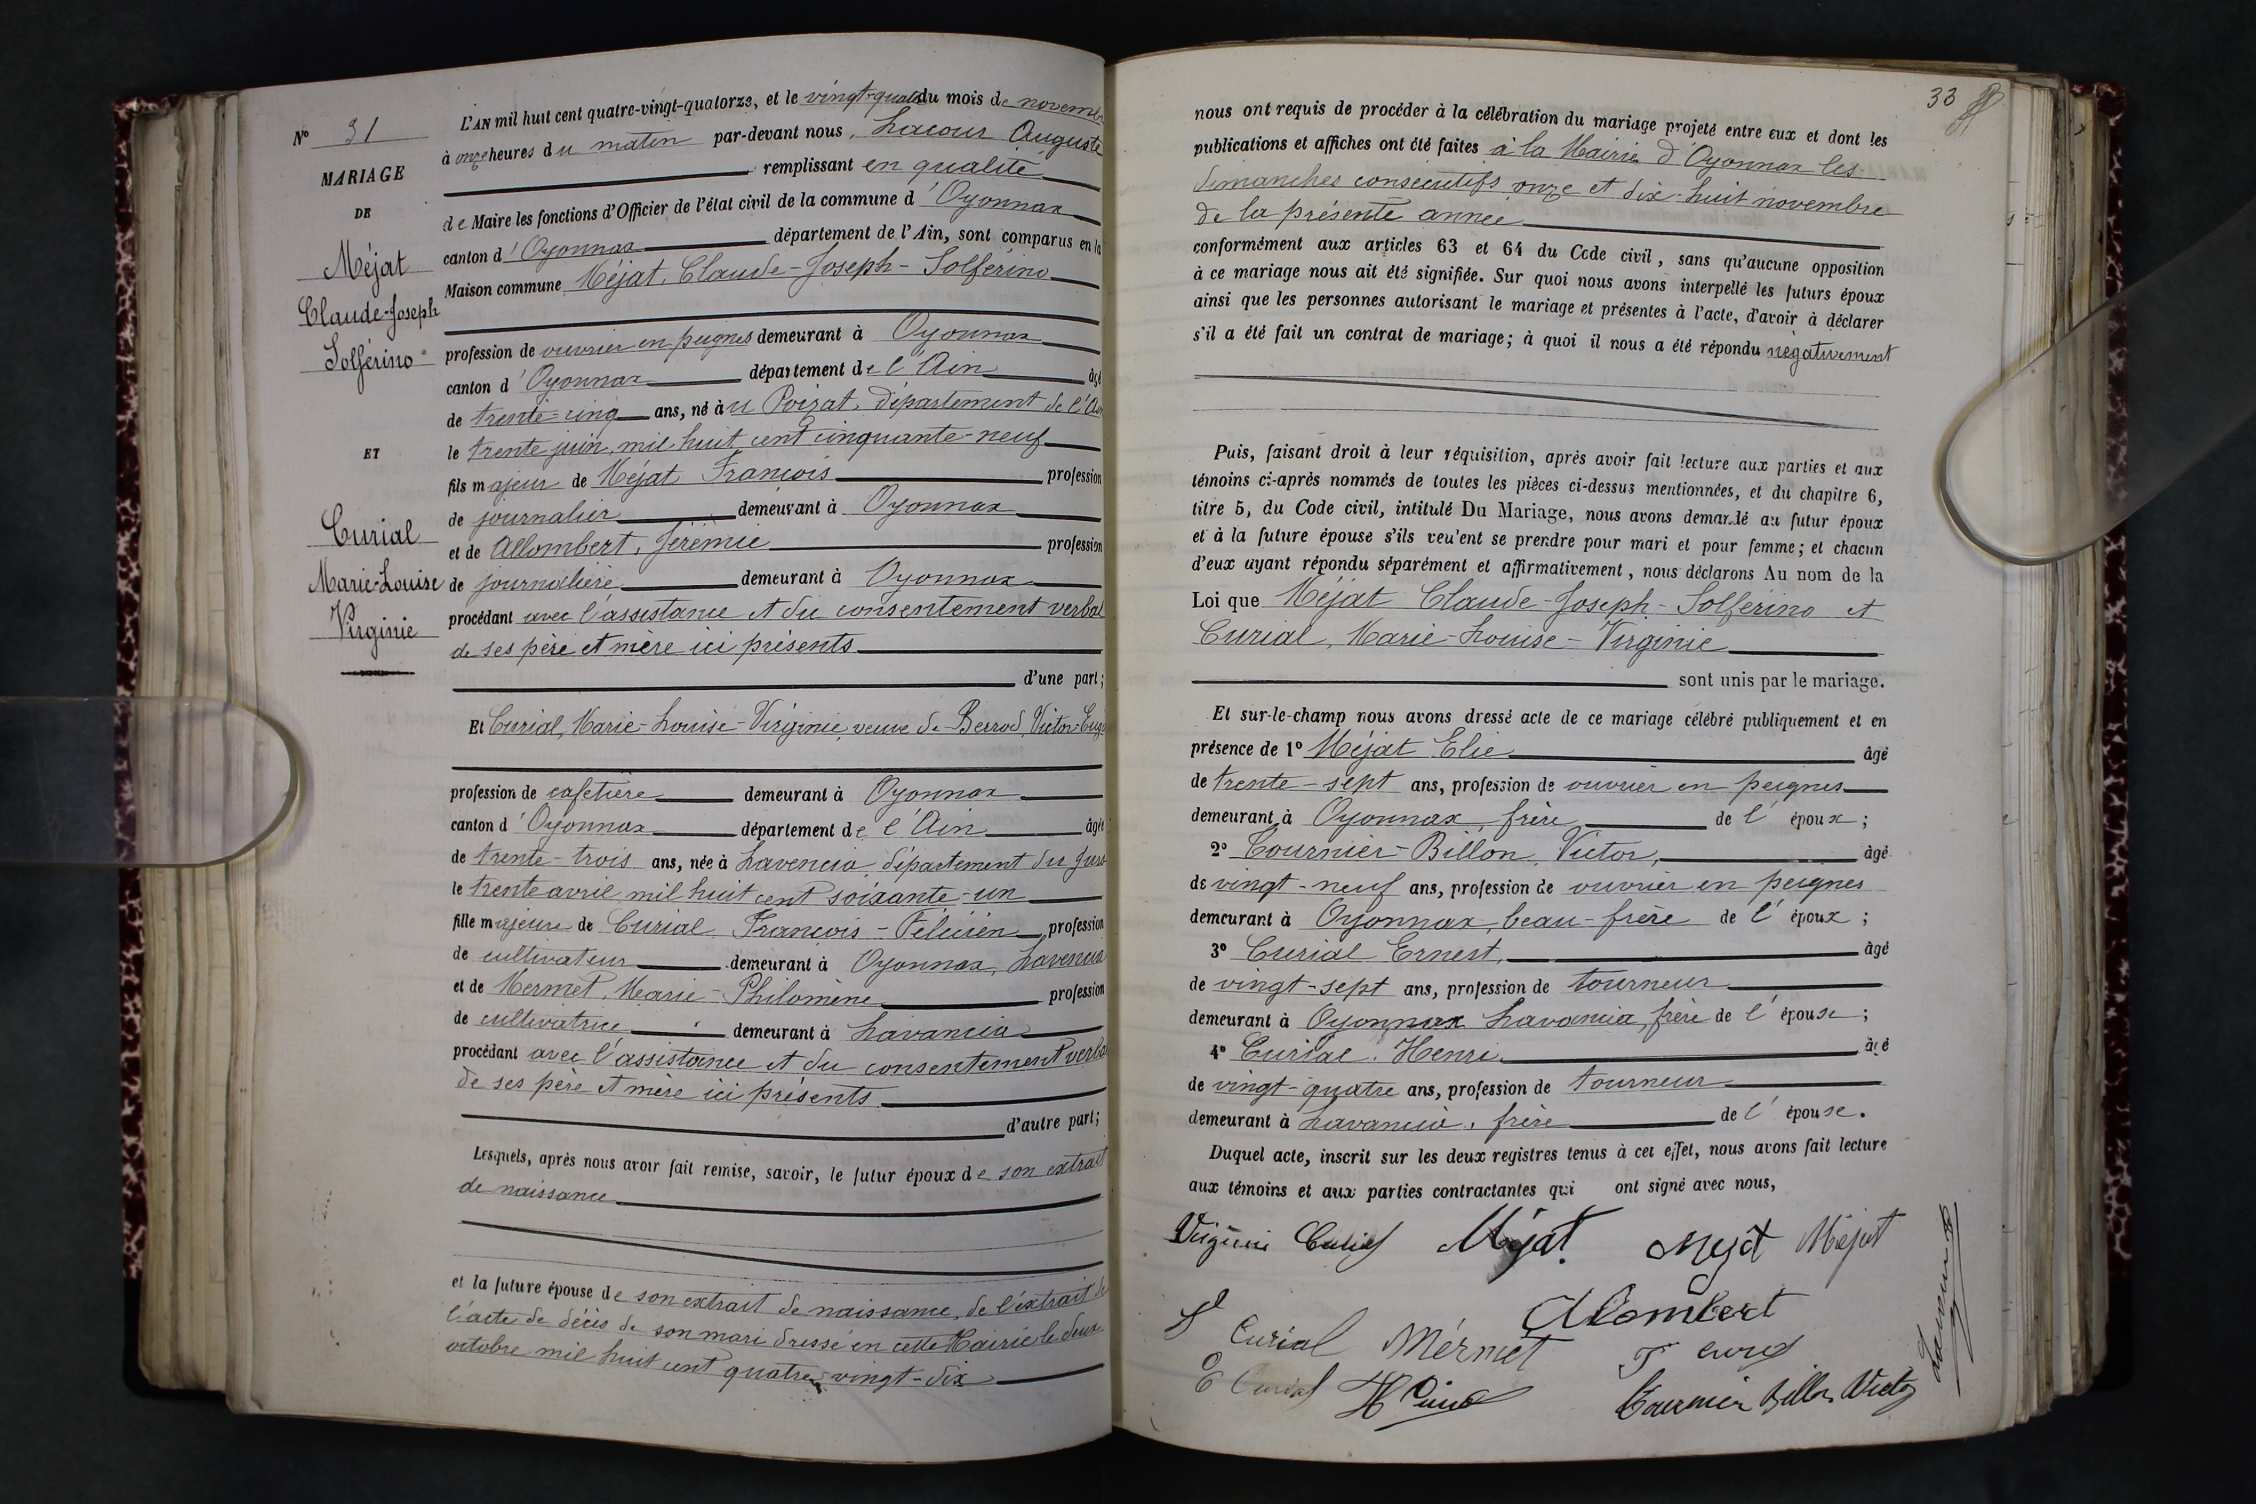 N° 31
MARIAGE
DE
Méjat
Claude-Joseph
Solférino
ET
Curial
Marie-Louise
Virginie
L'AN mil huit cent quatre-vingt-quatorze, et le vingt-quatre du mois de novembre
à onze heures du matin par-devant nous, Lacour Auguste
remplissant en qualité
de Maire les fonctions d'Officier de l'état civil de la commune d'Oyonnax
canton d'Oyonnax département de l'Ain, sont comparus en la
Maison commune Méjat, Claude-Joseph-Solférino
profession de ouvrier en peignes demeurant à Oyonnax
canton d'Oyonnax département de l'Ain âgé
de trente-cinq ans, né à u Poizat, département de l'Ain
le trente juin mil huit cent cinquante-neuf
fils majeur de Méjat François profession
de journalier demeurant à Oyonnax
et de Allombert, Jérémie profession
de journalière demeurant à Oyonnax
procédant avec l'assistance et du consentement verbal
de ses père et mère ici présents
d'une part;
Et Curial, Marie-Louise-Virginie, veuve de Berrod, Victor-Eug
profession de cafetière demeurant à Oyonnax
canton d'Oyonnax département de l'Ain âgée
de trente-trois ans, née à Lavancia, département du Jura
le trente avril mil huit cent soixante-un
fille majeure de Curial François-Félicien profession
de cultivateur demeurant à Oyonnax, Lavancia
et de Mermet, Marie-Philomène profession
de cultivatrice demeurant à Lavancia
procédant avec l'assistance et du consentement verbal
de ses père et mère ici présents
d'autre part;
Lesquels, après nous avoir fait remise, savoir, le futur époux de son extrait
de naissance
et la future épouse de son extrait de naissance, de l'extrait de
l'acte de décès de son mari dressé en cette Mairie le deux
octobre mil huit cent quatre-vingt-dix
33
nous ont requis de procéder à la célébration du mariage projeté entre eux et dont les
publications et affiches ont été faites à la Mairie d'Oyonnax les
dimanches consécutifs onze et dix-huit novembre
de la présente année
conformément aux articles 63 et 64 du Code civil, sans qu'aucune opposition
à ce mariage nous ait été signifiée. Sur quoi nous avons interpellé les futurs époux
ainsi que les personnes autorisant le mariage et présentes à l'acte, d'avoir à déclarer
s'il a été fait un contrat de mariage; à quoi il nous a été répondu négativement
Puis, faisant droit à leur réquisition, après avoir fait lecture aux parties et aux
témoins ci-après nommés de toutes les pièces ci-dessus mentionnées, et du chapitre 6,
titre 5, du Code civil, intitulé Du Mariage, nous avons demandé au futur époux
et à la future épouse s'ils veulent se prendre pour mari et pour femme; et chacun
d'eux ayant répondu séparément et affirmativement, nous déclarons Au nom de la
Loi que Méjat Claude-Joseph-Solférino et
Curial, Marie-Louise-Virginie
sont unis par le mariage.
Et sur-le-champ nous avons dressé acte de ce mariage célébré publiquement et en
présence de 1° Méjat Elie âgé
de trente-sept ans, profession de ouvrier en peignes
demeurant à Oyonnax, frère de l'époux;
2° Tournier-Billon, Victor, âgé
de vingt-neuf ans, profession de ouvrier en peignes
demeurant à Oyonnax, beau-frère de l'époux;
3° Curial Ernest, âgé
de vingt-sept ans, profession de tourneur
demeurant à Oyonnax Lavancia, frère de l'épouse;
4° Curial, Henri âgé
de vingt-quatre ans, profession de tourneur
demeurant à Lavancia, frère de l'épouse.
Duquel acte, inscrit sur les deux registres tenus à cet effet, nous avons fait lecture
aux témoins et aux parties contractantes qui ont signé avec nous,
Virginie Curial Méjat Mejat Méjat
Allombert
Curial Mérmet
E Curial
Tournier Billon Victor
Lacour